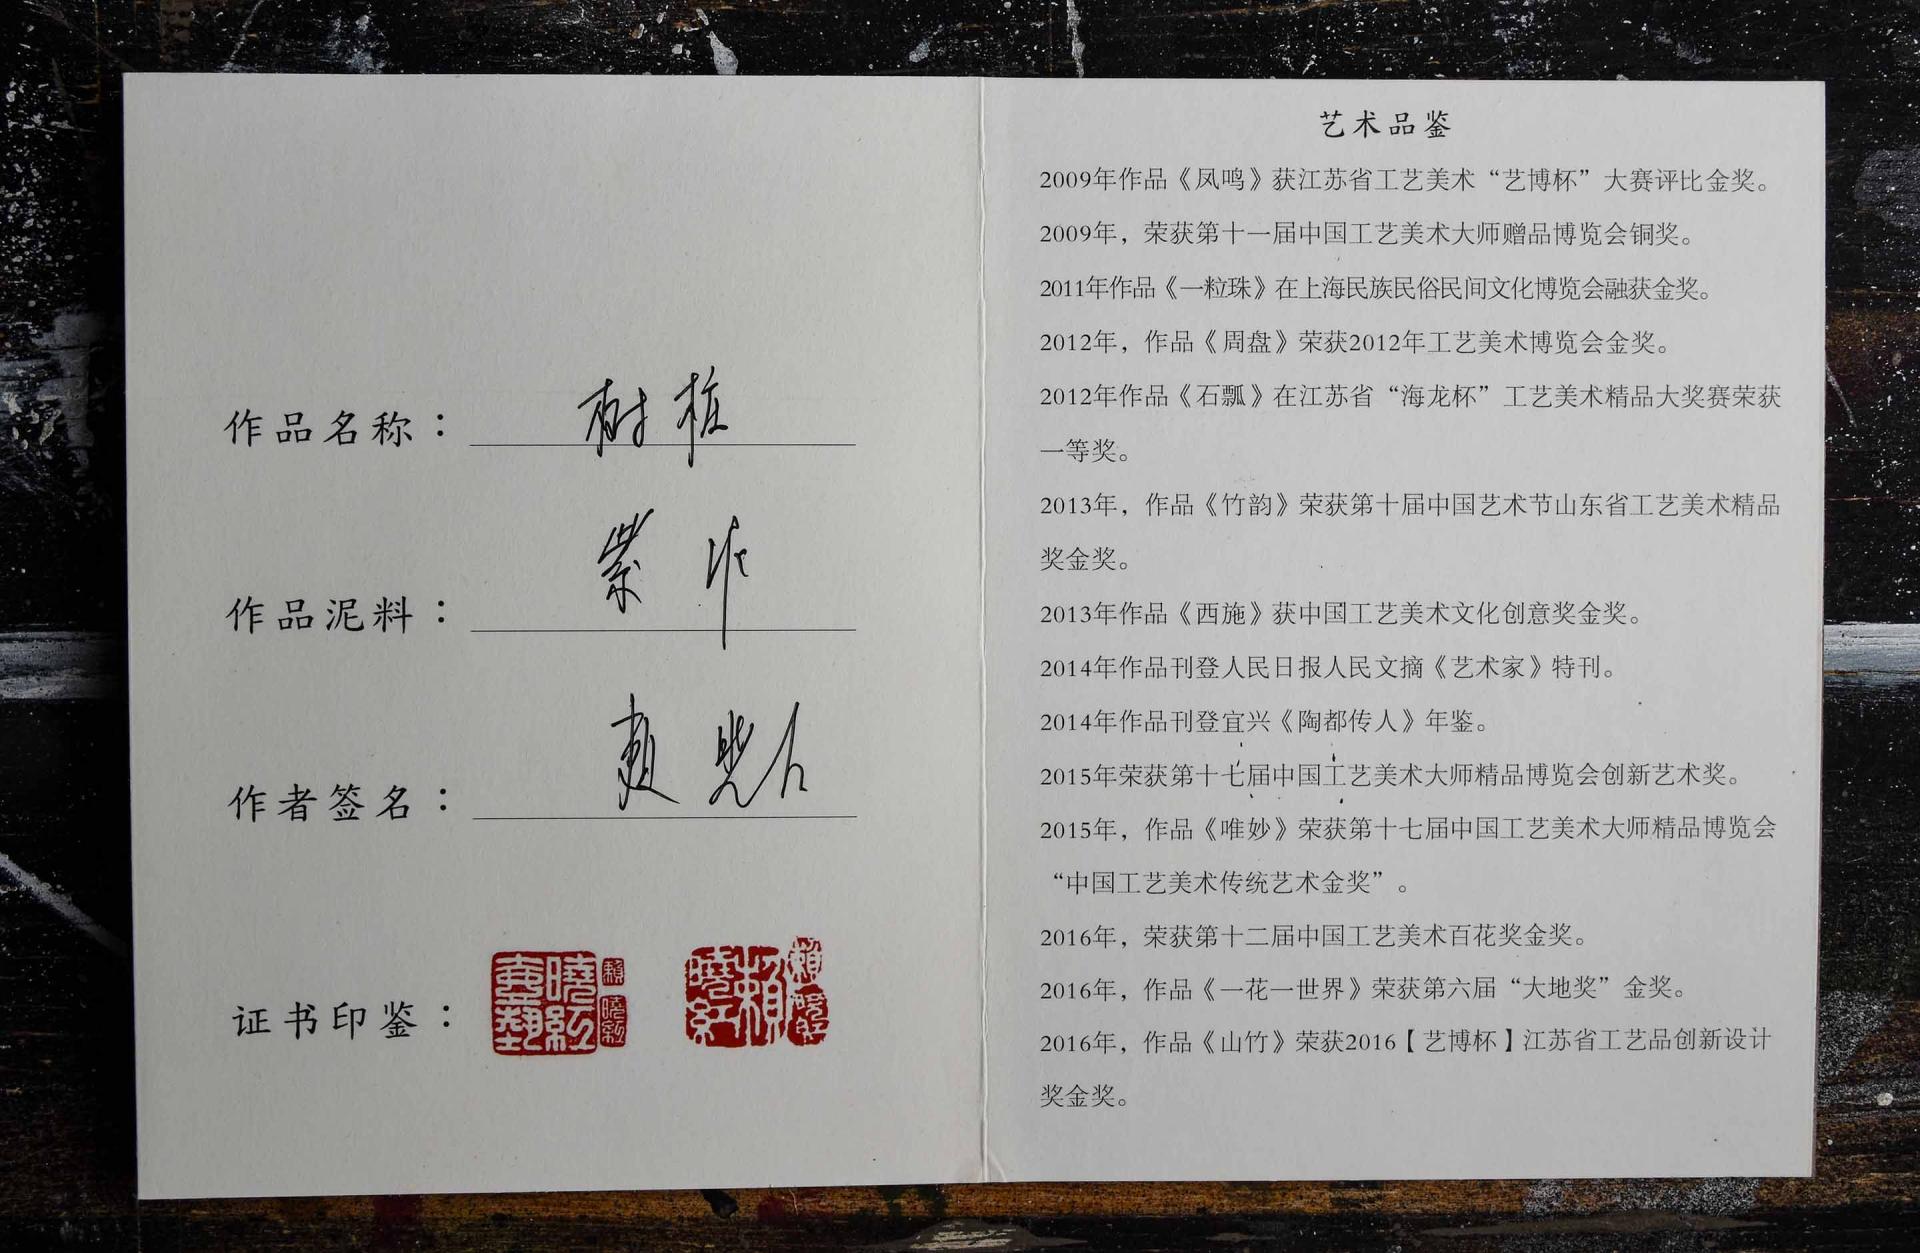 作品名称：树桩
作品泥料：紫泥
作者签名：
证书印鉴：
曉紅壺藝
賴曉紅
賴曉紅
賴曉紅
艺术品鉴
2009年作品《凤鸣》获江苏省工艺美术“艺博杯”大赛评比金奖。
2009年，荣获第十一届中国工艺美术大师赠品博览会铜奖。
2011年作品《一粒珠》在上海民族民俗民间文化博览会融获金奖。
2012年，作品《周盘》荣获2012年工艺美术博览会金奖。
2012年作品《石瓢》在江苏省“海龙杯”工艺美术精品大奖赛荣获
一等奖。
2013年，作品《竹韵》荣获第十届中国艺术节山东省工艺美术精品
奖金奖。
2013年作品《西施》获中国工艺美术文化创意奖金奖。
2014年作品刊登人民日报人民文摘《艺术家》特刊。
2014年作品刊登宜兴《陶都传人》年鉴。
2015年荣获第十七届中国工艺美术大师精品博览会创新艺术奖。
2015年，作品《唯妙》荣获第十七届中国工艺美术大师精品博览会
“中国工艺美术传统艺术金奖”。
2016年，荣获第十二届中国工艺美术百花奖金奖。
2016年，作品《一花一世界》荣获第六届“大地奖”金奖。
2016年，作品《山竹》荣获2016【艺博杯】江苏省工艺品创新设计
奖金奖。